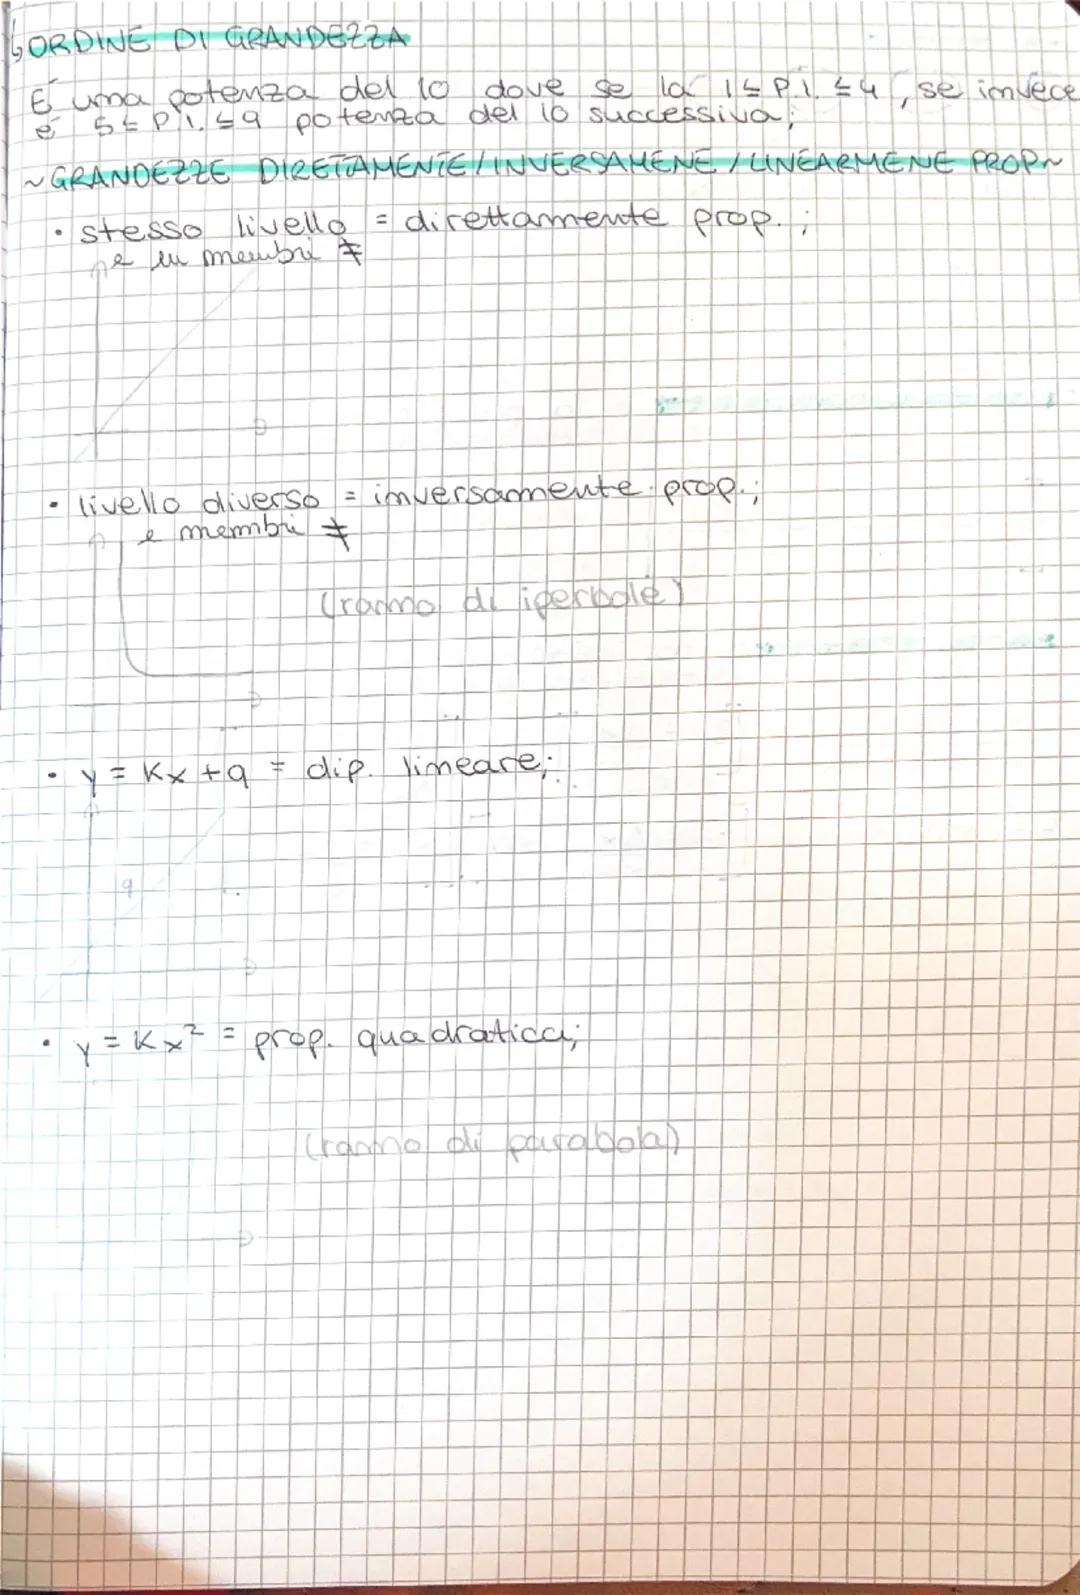 ↳ORDINE DI GRANDEZZA
É una potenza del 10 dove se la 1≤ P.I. ≤4, se invece
è 5≤ P.I. ≤9 potenza del 10 successiva;
~GRANDEZZE DIRETTAMENTE/INVERSAMENE/LINEARMENE PROP~
• stesso livello = direttamente prop. ;
e in membri ≠
• livello diverso = inversamente prop.;
e membri ≠
(ramo di iperbole)
• y = Kx + q = dip. lineare;
q
• y = Kx² = prop. quadratica;
(ramo di parabola)